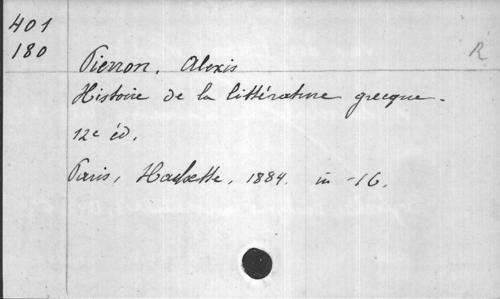 401
180
R
Pierron, Alexis
Histoire de la littérature grecque.
12e éd.
Paris, Hachette, 1884. in-16.